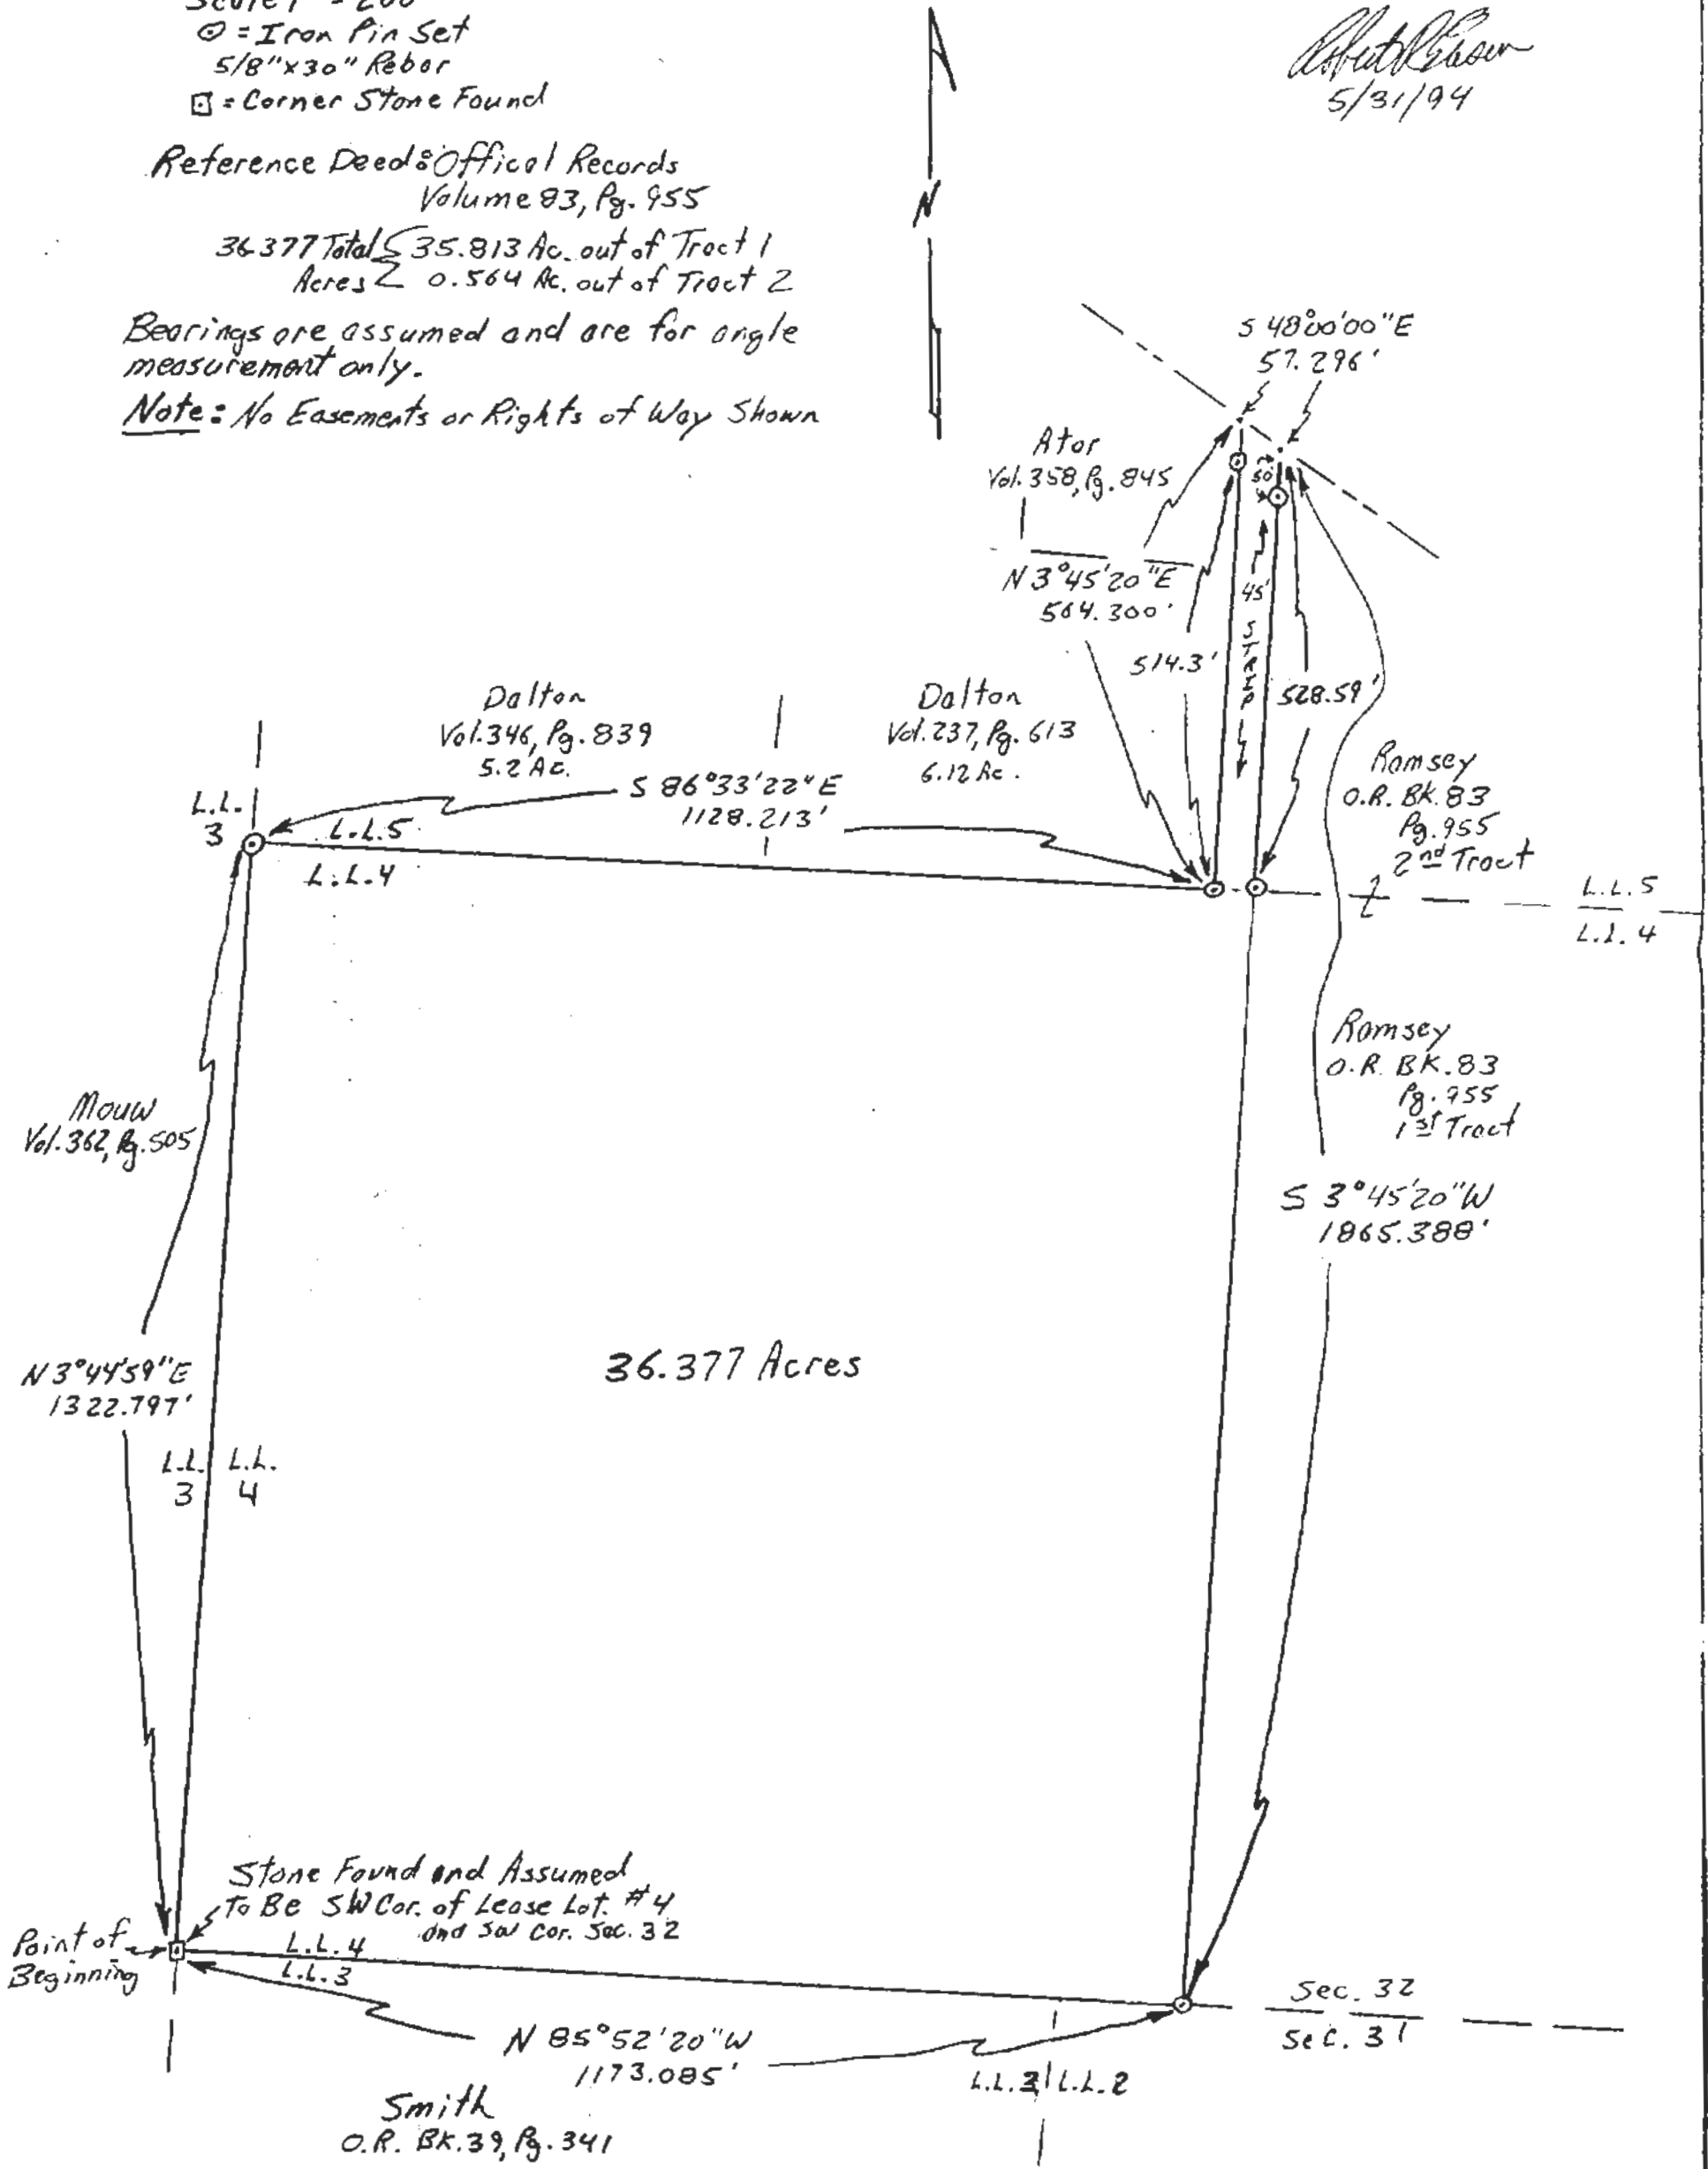 ⊙ = Iron Pin Set
5/8"x30" Rebar
⊡ = Corner Stone Found
Reference Deed: Offical Records
Volume 83, Pg. 955
36.377 Total { 35.813 Ac. out of Tract 1
Acres { 0.564 Ac. out of Tract 2
Bearings are assumed and are for angle
measurement only.
Note: No Easements or Rights of Way Shown
N
5/31/94
S 48°00'00"E
57.296'
Ator
Vol. 358, Pg. 845
50'
N 3°45'20"E
564.300'
45'
STRIP
514.3'
528.59'
Dalton
Vol. 346, Pg. 839
5.2 Ac.
Dalton
Vol. 237, Pg. 613
6.12 Ac.
S 86°33'22"E
1128.213'
Ramsey
O.R. BK. 83
Pg. 955
2nd Tract
L.L.
3
L.L.5
L.L.4
L.L.5
L.L.4
Ramsey
O.R. BK. 83
Pg. 955
1st Tract
Mouw
Vol. 362, Pg. 505
S 3°45'20"W
1865.388'
36.377 Acres
N 3°44'59"E
1322.797'
L.L. L.L.
3 4
Stone Found and Assumed
To Be SW Cor. of Lease Lot. #4
and SW Cor. Sec. 32
Point of
Beginning
L.L.4
L.L.3
Sec. 32
Sec. 31
N 85°52'20"W
1173.085'
L.L.3 L.L.2
Smith
O.R. BK. 39, Pg. 341